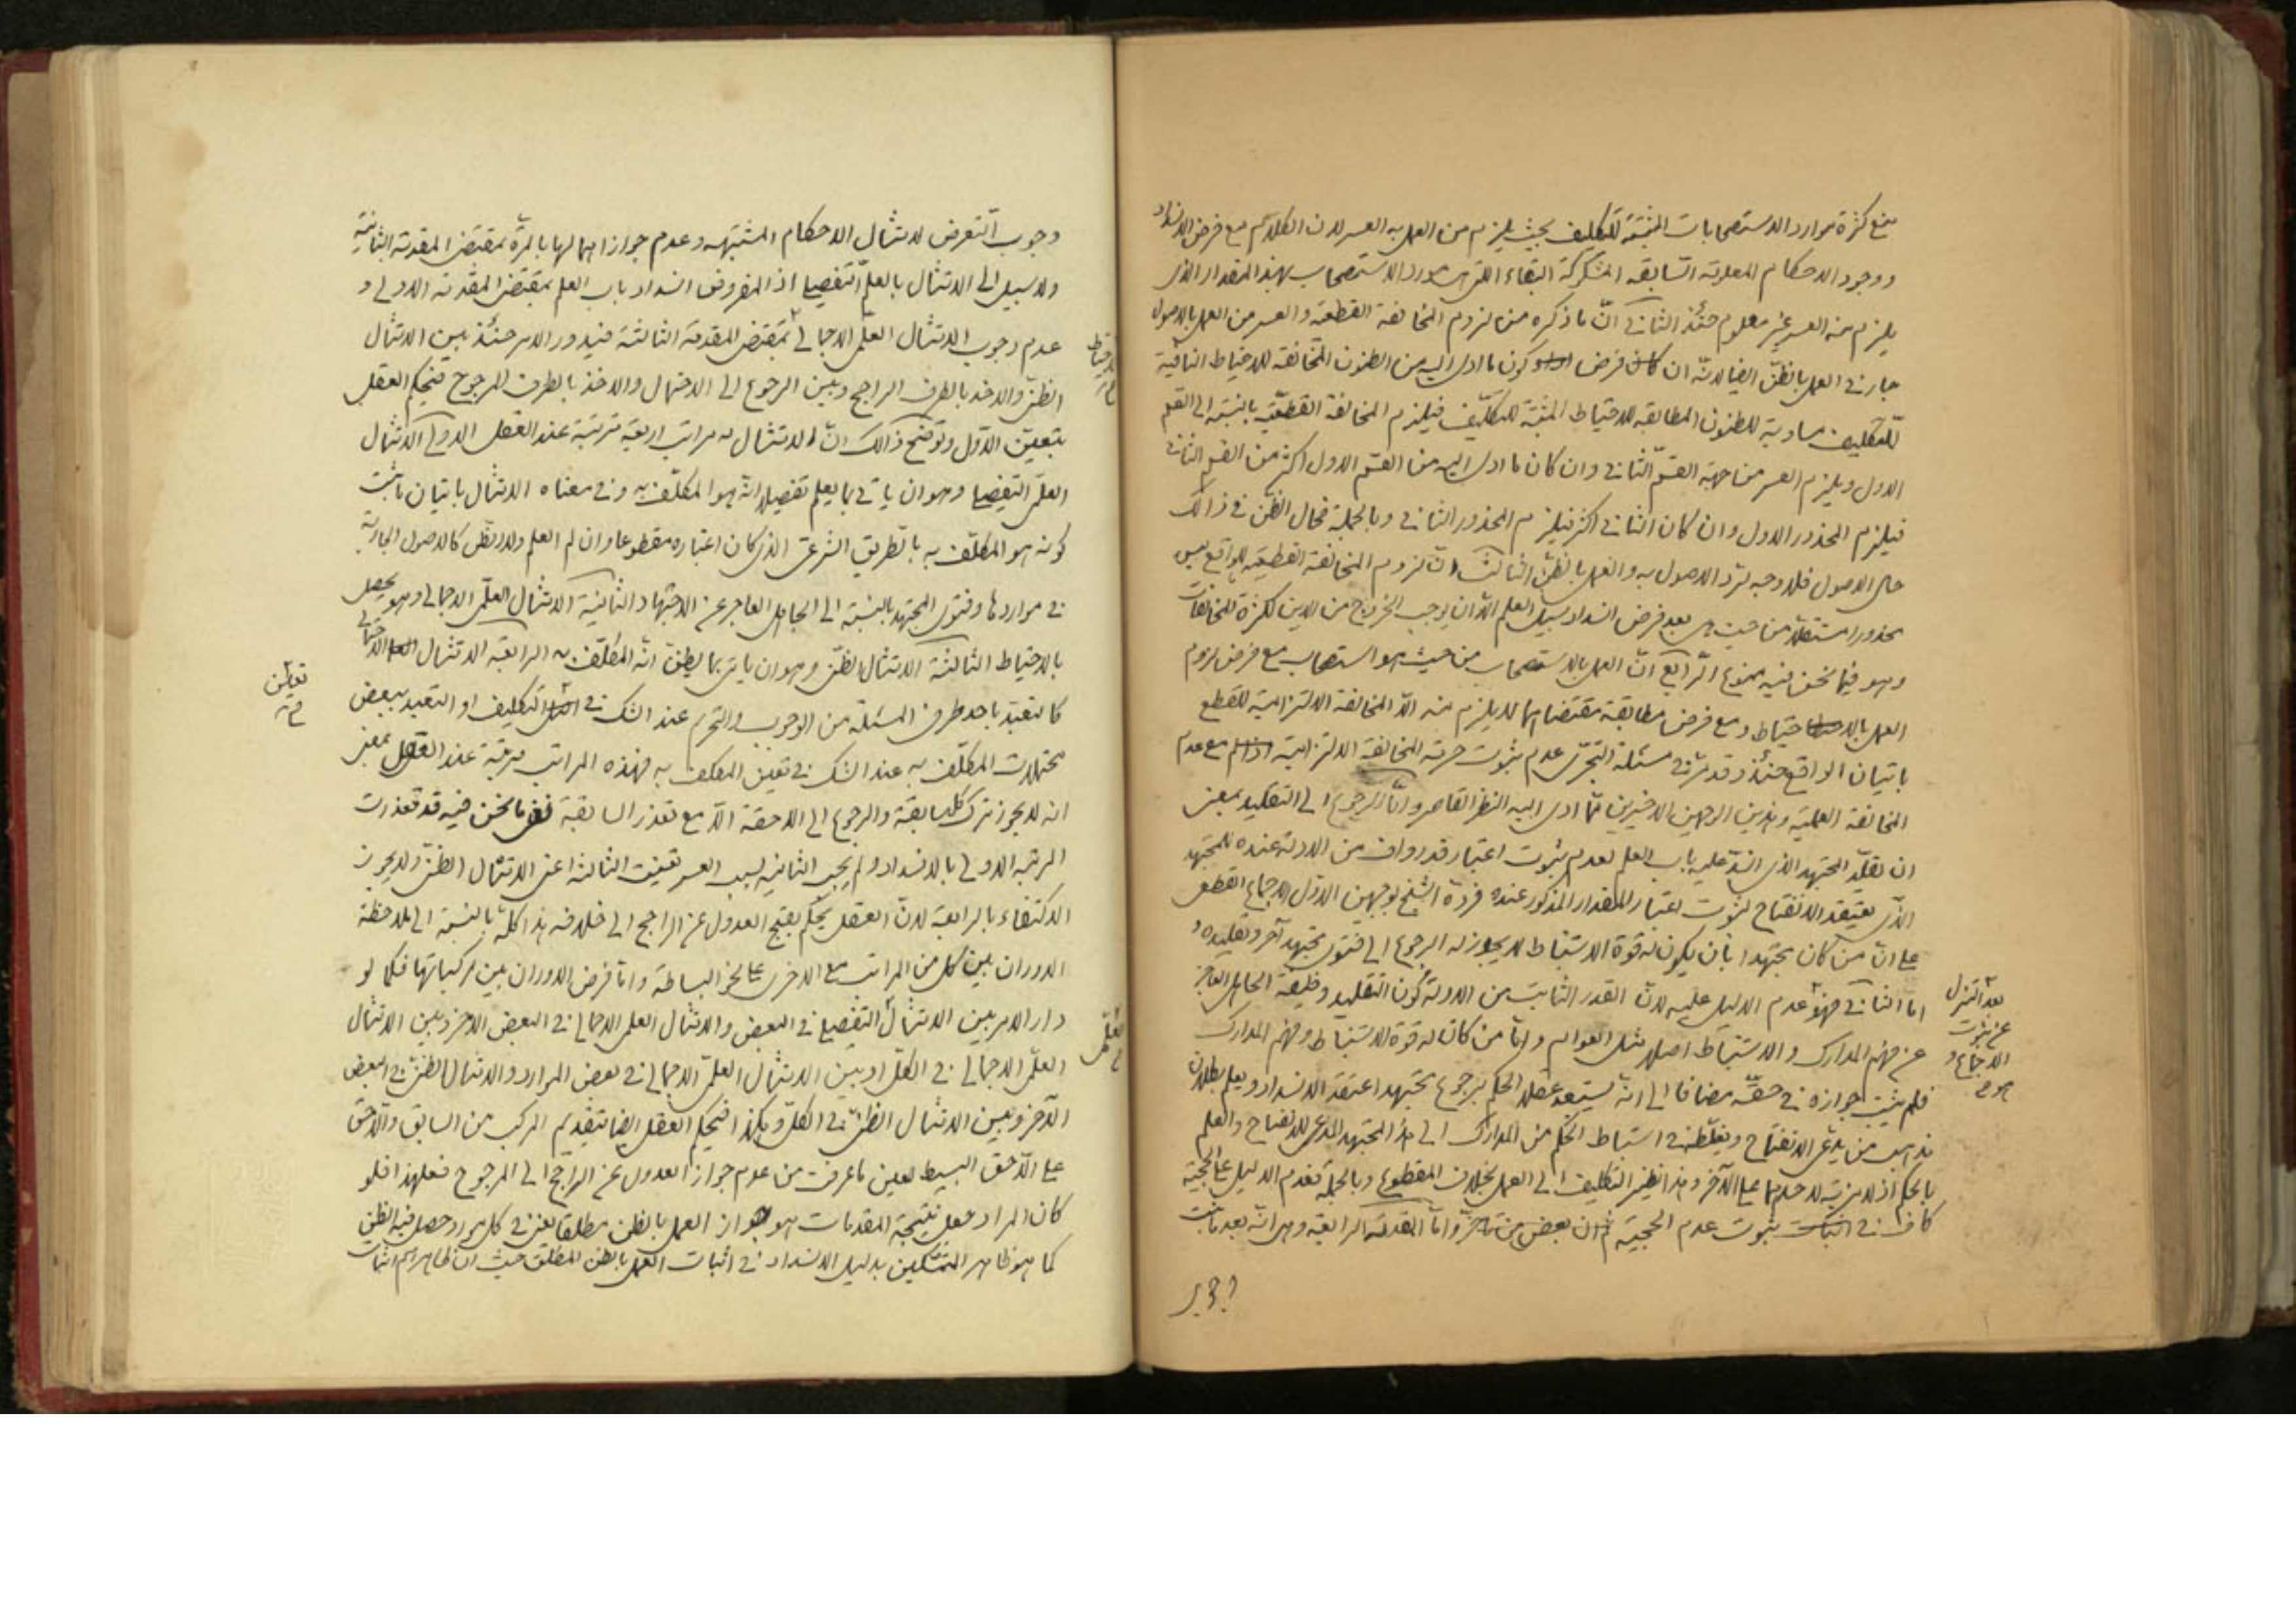 منع كثرة موارد الاستصحابات المثبتة للتكليف بحيث يلزم من العمل به العسر لان الكلام مع فرض الانسداد
ووجود الاحكام المعلومة السابقة المشكوكة البقاء التى هى مورد الاستصحاب بهذا المقدار الذى
يلزم منه العسر غير معلوم حينئذ الثانى انّ ما ذكره من لزوم المخالفة القطعية والعسر من العمل بالاصول
جار فى العمل بالظنّ ايضا لانّه ان فرض كون ما ادى اليه من الظنون المخالفة للاحتياط النافية
للتكليف مساوية للظنون المطابقة للاحتياط المثبتة للتكليف فيلزم المخالفة القطعيّة بالنسبة الى القسم
الاول ويلزم العسر من جهة القسم الثانى وان كان ما ادى اليه من القسم الاول اكثر من القسم الثانى
فيلزم المحذور الاول وان كان الثانى اكثر فيلزم المحذور الثانى وبالجملة فحال الظنّ فى ذالك
حال الاصول فلا وجه لترد الاصول به والعمل بالظنّ الثالث انّ لزوم المخالفة القطعية للواقع ليس
محذورا مستقلا من حيث هى بعد فرض انسداد سبيل العلم الّا ان يوجب الخروج من الدين لكثرة المخالفات
وهو فيما نحن فيه ممنوع الرّابع انّ العمل بالاستصحاب من حيث هو استصحاب مع فرض لزوم
العمل بالاحتياط ومع فرض مطابقة مقتضاهما لا يلزم منه الّا المخالفة الالتزامية للقطع
باتيان الواقع حينئذ وقد مرّ فى مسئلة التجرّى عدم ثبوت حرمة المخالفة الالتزامية مع عدم
المخالفة العلمية وهذين الوجهين الاخيرين ممّا ادى اليه النظر القاصر وامّا الرجوع الى التقليد بمعنى
ان يقلّد المجتهد الذى انسدّ عليه باب العلم لعدم ثبوت اعتبار قدر واف من الادلة عنده للمجتهد
الذى يعتقد الانفتاح لثبوت اعتبار المقدار المذكور عنده فردّه الشيخ بوجهين الاوّل الاجماع القطعى
على انّ من كان مجتهدا بان يكون له قوة الاستنباط لا يجوز له الرجوع الى فتوى مجتهد آخر وتقليده و
اما الثانى فهو عدم الدليل عليه لانّ القدر الثابت من الادلة كون التقليد وظيفة الجاهل العاجز
بعد التنزل
عن ثبوت
الاجماع و
هو
عن فهم المدارك والاستنباط اصلا مثل العوام وامّا من كان له قوة الاستنباط وفهم المدارك
فلم يثبت جوازه فى حقّه مضافا الى انّه يستبعد عقلا الحكم برجوع مجتهد اعتقد الانسداد ويعلم بطلان
مذهب من يدّعى الانفتاح ويغلّطه فى استنباط الحكم من المدارك الى هذا المجتهد المدعى للانفتاح والعلم
بالحكم اذ لا مزية لاحدهما على الآخر وهذا نظير التكليف الى العمل بخلاف المقطوع وبالجملة فعدم الدليل على الحجية
كاف فى ثبوت عدم الحجية ثم ان بعض من تاخّر وامّا المقدمة الرابعة وهى انّه بعد ما ثبت
وجوب
وجوب التعرض لامتثال الاحكام المشتبهه وعدم جواز اهمالها بالمرّة بمقتضى المقدمة الثانية
ولا سبيل الى الامتثال بالعلم التفصيلى اذ المفروض انسداد باب العلم بمقتضى المقدمة الاولى و
عدم وجوب الامتثال العلمى الاجمالى بمقتضى المقدمة الثالثة فيدور الامر حينئذ بين الامتثال
الاحتياط
الظنى والاخذ بالطرف الراجح وبين الرجوع الى الاحتمال والاخذ بالطرف المرجوح فيحكم العقل
بتعيين الاوّل وتوضيح ذالك انّ الامتثال له مراتب اربعة مترتبة عند العقل الاولى الامتثال
العلمى التفصيلى وهو ان ياتى بما يعلم تفصيلا انّه هو المكلّف به وفى معناه الامتثال باتيان ما ثبت
كونه هو المكلّف به بالطريق الشرعى الذى كان اعتباره مقطوعا وان لم العلم ولا الظنّ كالاصول الجارية
فى مواردها وفتوى المجتهد بالنسبة الى الجاهل العاجز عن الاجتهاد الثانية الامتثال العلمى الاجمالى وهو يحصل
بالاحتياط الثالثة الامتثال الظنّى وهو ان ياتى بما يظنّ انّه المكلّف به الرابعة الامتثال الاحتمالى
كالتعبّد باحد طرفى المسئلة من الوجوب والتحريم عند الشك فى التكليف او التعبد ببعض
محتملات المكلّف به عند الشك فى تعيين المكلف به فهذه المراتب مترتبة عند العقل بمعنى
انه لا يجوز ترك كل سابقة والرجوع الى لاحقة الّا مع تعذر السابقة ففى ما نحن فيه قد تعذرت
المرتبة الاولى بالانسداد ولم يجب الثانية لسبب العسر تعينت الثالثة اعنى الامتثال الظنّى ولا يجوز
الاكتفاء بالرابعة لانّ العقل يحكم بقبح العدول عن الراجح الى خلافه هذا كلّه بالنسبة الى ملاحظة
الدوران بين كل من المراتب مع الاخرى على نحو البساطة وامّا فرض الدوران بين مركباتها فكما لو
دار الامر بين الامتثال التفصيلى فى البعض والامتثال العلمى الاجمالى فى البعض الآخر وبين الامتثال
العلمى
العلمى الاجمالى فى الكلّ او بين الامتثال العلمى الاجمالى فى بعض الموارد والامتثال الظنّى فى البعض
الآخر وبين الامتثال الظنّى فى الكلّ وهكذا فيحكم العقل ايضا بتقديم المركب من السابق واللاحق
على اللاحق البسيط لعين ما عرفت من عدم جواز العدول عن الراجح الى المرجوح فعلى هذا فلو
كان المراد جعل نتيجة المقدمات هو جواز العمل بالظن مطلقا يعنى فى كل مورد حصل فيه الظن
كما هو ظاهر المتمسّكين بدليل الانسداد فى اثبات العمل بالظن المطلق حيث ان ظاهرهم اثبات